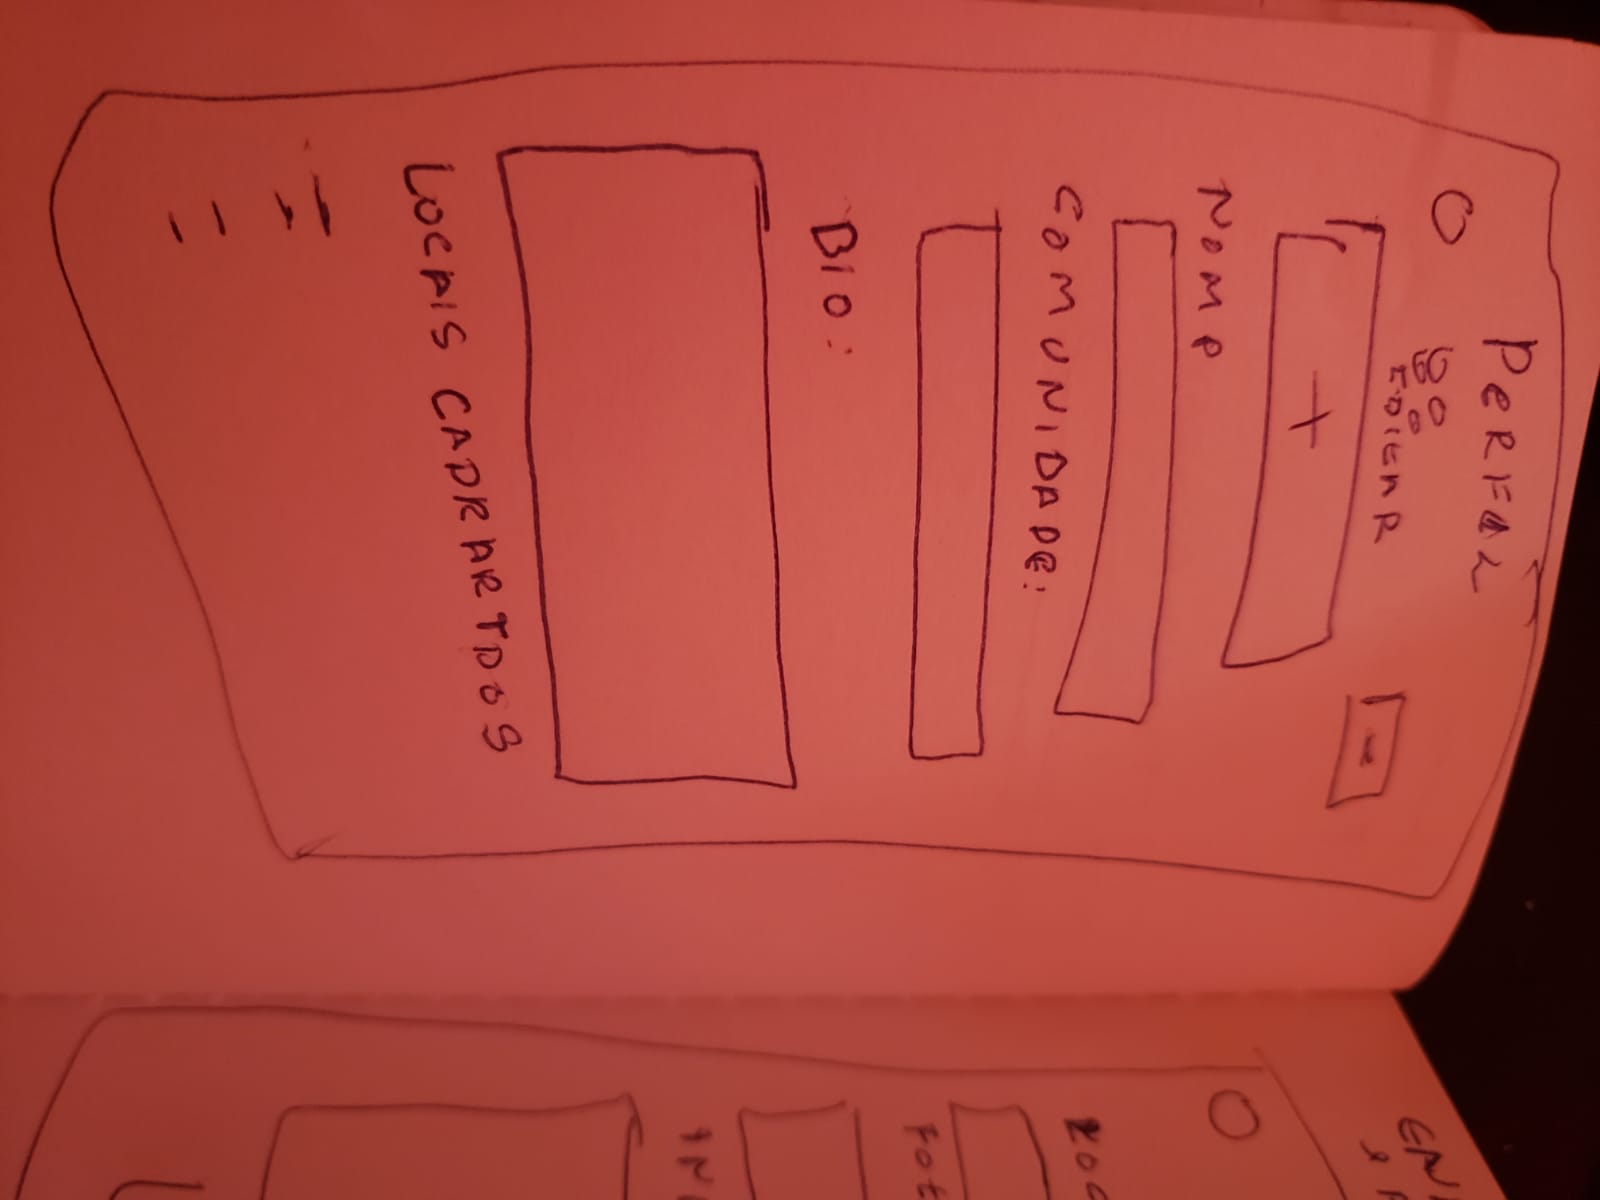 PERFIL
EDICAR
+
-
NOMP
COMUNIDADE:
BIO:
LOCAIS CADRARTDOS
EN
FOT
IN